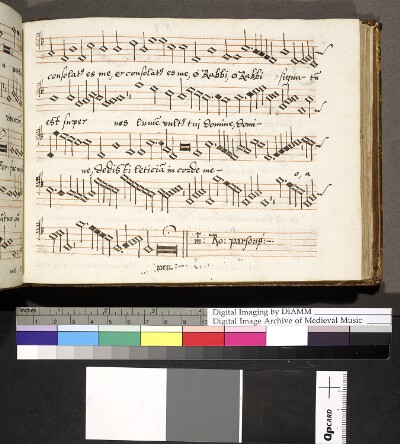 consolat9 es me, et consolat9 es me, ô Rabbi, ô Rabbi, signa- tū
est super nos lumē vult9 tui domine, domi-
ne, dedisti leticiā in corde me-
o, a
men :-
mr: Ro: parsons :-
inches 1 2 3
Digital Imaging by DIAMM
Digital Image Archive of Medieval Music
QPCARD